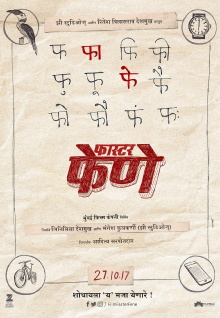 झी स्टुडिओज् आणि रितेश विलासराव देशमुख
फ फा फि फी
फु फू फे फै
फो फौ फं फः
फास्टर
फेणे
मुंबई फिल्म कंपनी
जिनिलिया देशमुख आणि मंगेश कुळकर्णी (झी स्टुडिओज्)
दिग्दर्शक आदित्य सरपोतदार
27.10.17
शोधायला 'य' मजा येणारे !